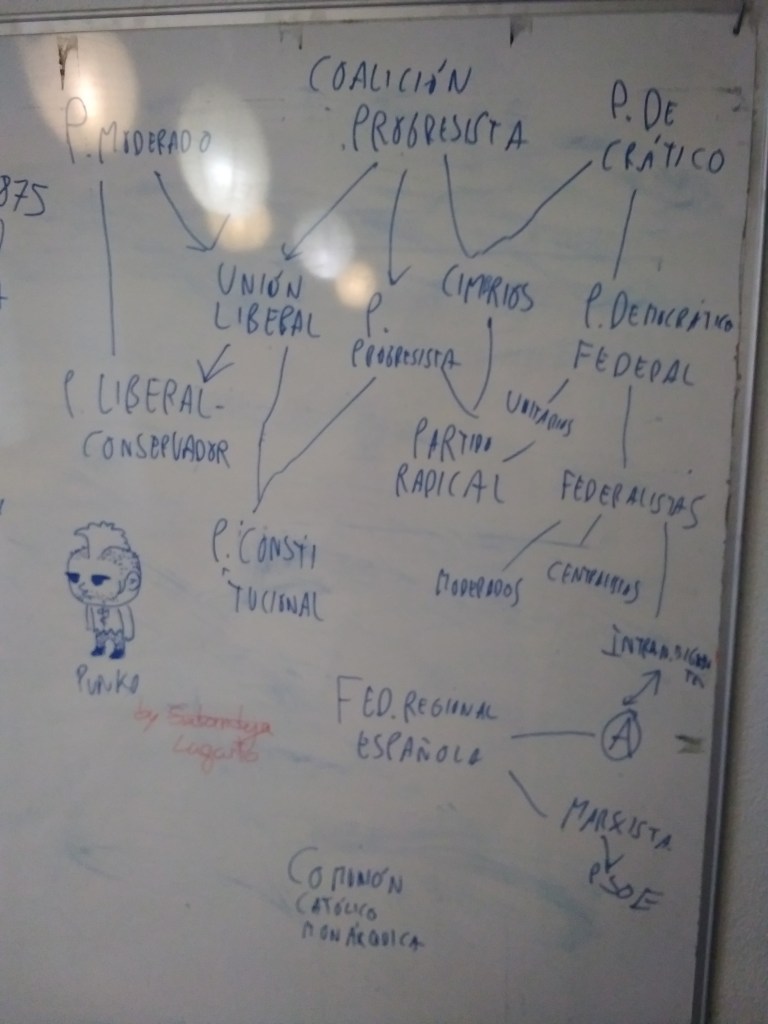 COALICIÓN
PROGRESISTA
P. DE
CRÁTICO
P. MODERADO
875
UNIÓN
LIBERAL
P.
PROGRESISTA
CIMBRIOS
P. DEMOCRÁTICO
FEDERAL
P. LIBERAL-
CONSERVADOR
UNITARIOS
PARTIDO
RADICAL
FEDERALISTAS
P. CONSTI
TUCIONAL
MODERADOS
CENTRALISTAS
PUNKO
by
Lagarto
FED. REGIONAL
ESPAÑOLA
A
MARXISTA
PSOE
COMUNIÓN
CATÓLICO
MONÁRQUICA